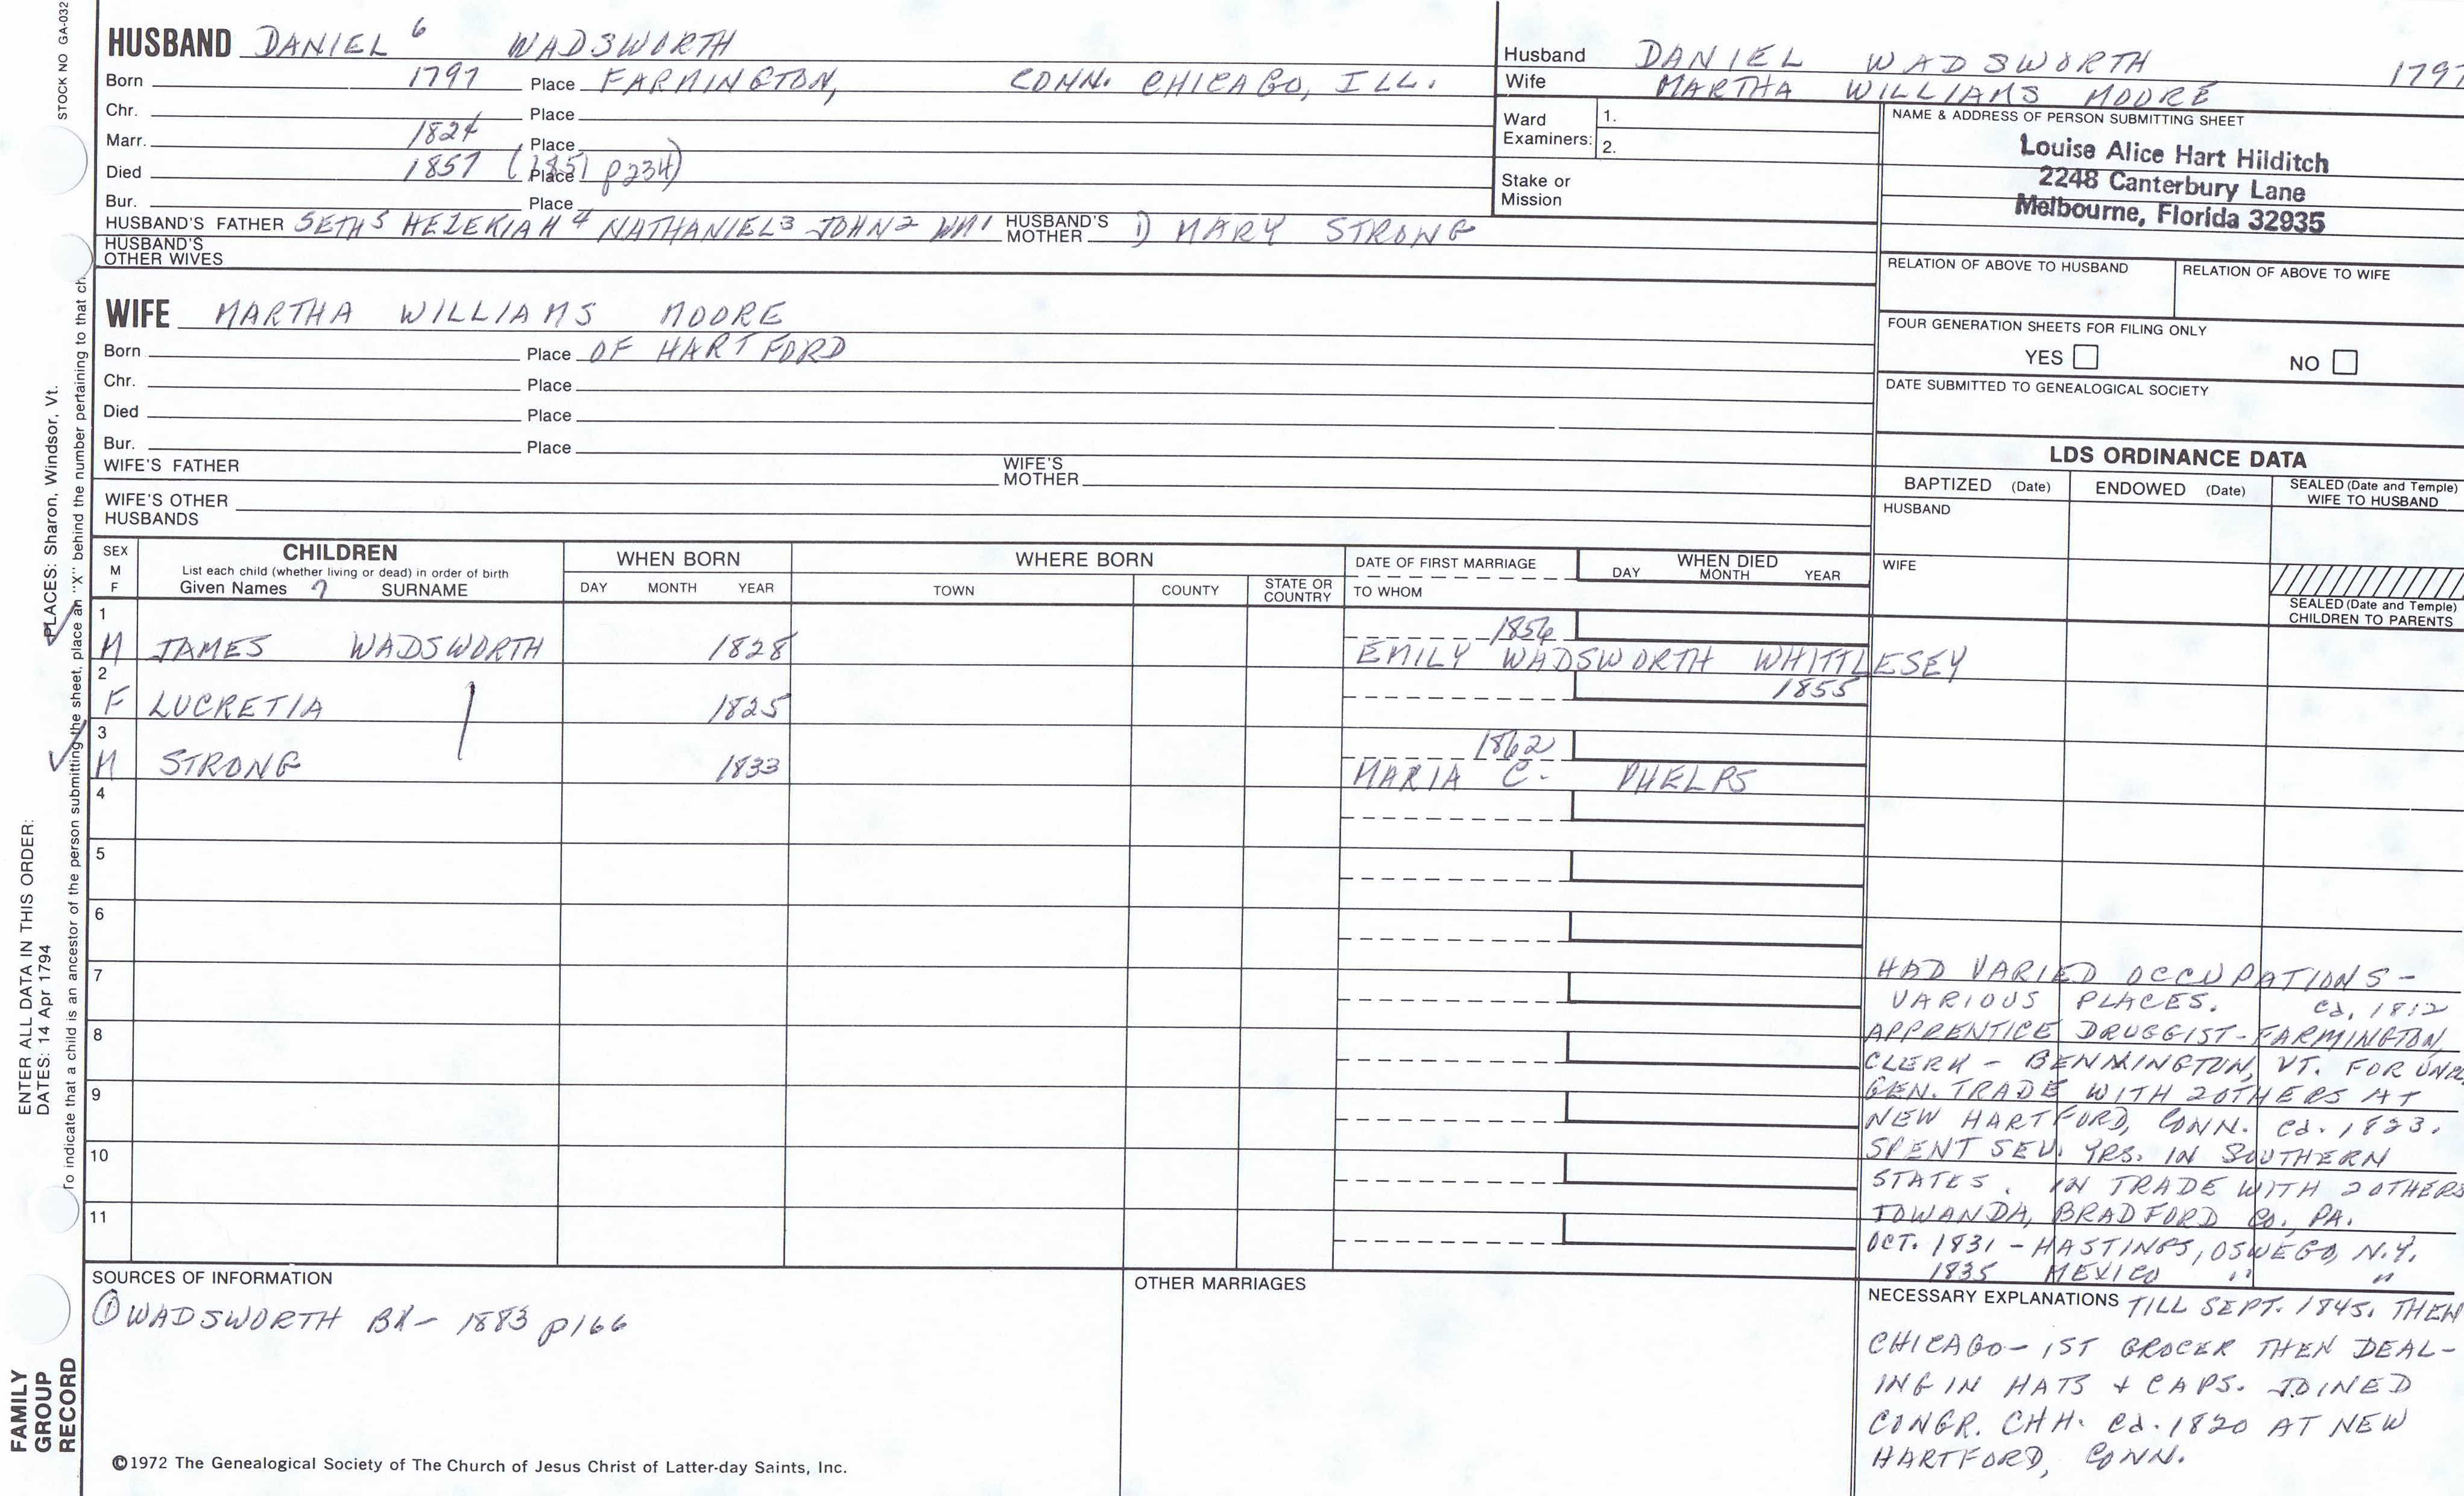 STOCK NO GA-032
HUSBAND DANIEL 6 WADSWORTH
Born 1797 Place FARMINGTON, CONN. CHICAGO, ILL.
Chr. Place
Marr. 1824 Place
Died 1857 (1851 p234) Place
Bur. Place
HUSBAND'S FATHER SETH 5 HEZEKIAH 4 NATHANIEL 3 JOHN 2 WM 1 HUSBAND'S MOTHER 1) MARY STRONG
HUSBAND'S OTHER WIVES
Husband DANIEL WADSWORTH 1797
Wife MARTHA WILLIAMS MOORE
Ward Examiners: 1.
2.
Stake or Mission
NAME & ADDRESS OF PERSON SUBMITTING SHEET
Louise Alice Hart Hilditch
2248 Canterbury Lane
Melbourne, Florida 32935
RELATION OF ABOVE TO HUSBAND RELATION OF ABOVE TO WIFE
FOUR GENERATION SHEETS FOR FILING ONLY
YES NO
DATE SUBMITTED TO GENEALOGICAL SOCIETY
WIFE MARTHA WILLIAMS MOORE
Born Place OF HARTFORD
Chr. Place
Died Place
Bur. Place
WIFE'S FATHER WIFE'S MOTHER
WIFE'S OTHER HUSBANDS
LDS ORDINANCE DATA
BAPTIZED (Date) ENDOWED (Date) SEALED (Date and Temple) WIFE TO HUSBAND
HUSBAND
WIFE
SEALED (Date and Temple) CHILDREN TO PARENTS
SEX M F
CHILDREN
List each child (whether living or dead) in order of birth
Given Names 7 SURNAME
WHEN BORN
DAY MONTH YEAR
WHERE BORN
TOWN COUNTY STATE OR COUNTRY
DATE OF FIRST MARRIAGE
TO WHOM
WHEN DIED
DAY MONTH YEAR
1 M JAMES WADSWORTH 1828 1856
EMILY WADSWORTH WHITTLESEY
2 F LUCRETIA 1825 1855
3 M STRONG 1833 1862
MARIA C. PHELPS
4
5
6
7
8
9
10
11
HAD VARIED OCCUPATIONS -
VARIOUS PLACES. ca. 1812
APPRENTICE DRUGGIST - FARMINGTON,
CLERK - BENNINGTON, VT. FOR
GEN. TRADE WITH 2 OTHERS AT
NEW HARTFORD, CONN. ca. 1823.
SPENT SEV. YRS. IN SOUTHERN
STATES. IN TRADE WITH 2 OTHERS
TOWANDA, BRADFORD CO., PA.
OCT. 1831 - HASTINGS, OSWEGO, N.Y.
1835 MEXICO " "
NECESSARY EXPLANATIONS TILL SEPT. 1845. THEN
CHICAGO - 1ST GROCER THEN DEAL-
ING IN HATS + CAPS. JOINED
CONGR. CHH. ca. 1820 AT NEW
HARTFORD, CONN.
SOURCES OF INFORMATION
① WADSWORTH BK - 1883 p166
OTHER MARRIAGES
©1972 The Genealogical Society of The Church of Jesus Christ of Latter-day Saints, Inc.
FAMILY GROUP RECORD
ENTER ALL DATA IN THIS ORDER:
DATES: 14 Apr 1794
PLACES: Sharon, Windsor, Vt.
To indicate that a child is an ancestor of the person submitting the sheet, place an "X" behind the number pertaining to that ch